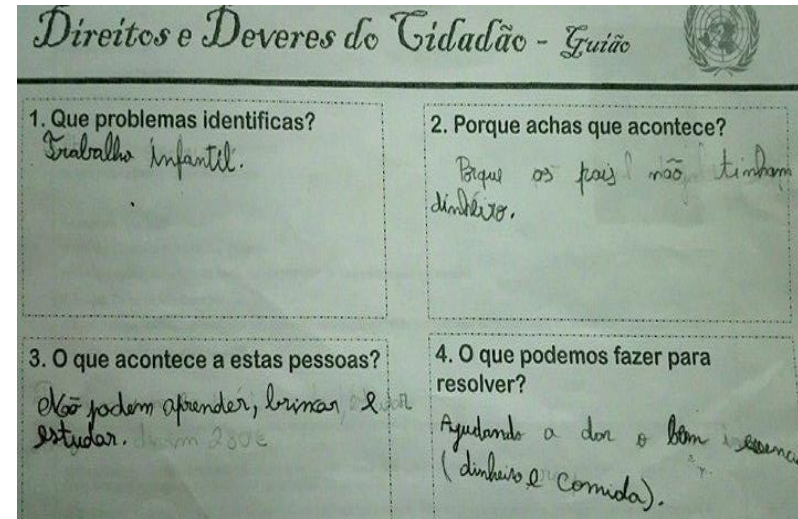 Direitos e Deveres do Cidadão - Guião
1. Que problemas identificas?
Trabalho infantil.
2. Porque achas que acontece?
Porque os pais não tinham
dinheiro.
3. O que acontece a estas pessoas?
Não podem aprender, brincar e
estudar.
4. O que podemos fazer para
resolver?
Ajudando a dar o bem
(dinheiro e comida).